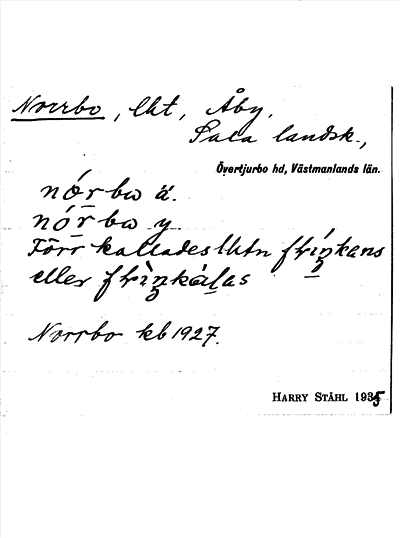 Norrbo, lht, Åby,
Sala landsk.,
Övertjurbo hd, Västmanlands län.
nórbω ä.
nórbω y.
Förr kallades lhtn friŋkens
eller friŋkàlas
Norrbo kb 1927.
HARRY STÅHL 1935